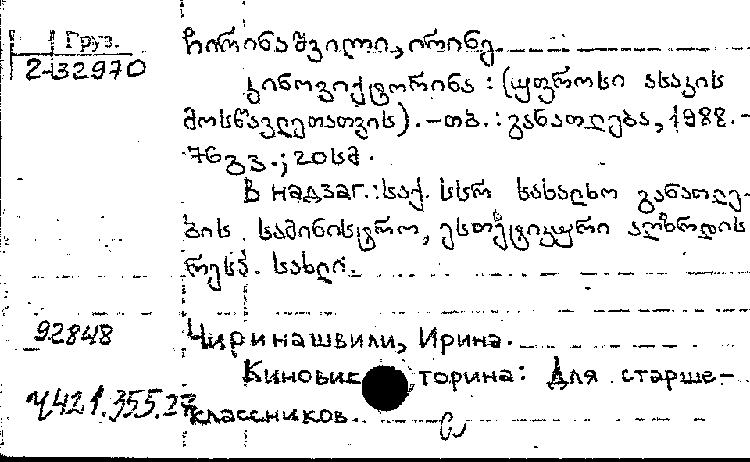 Груз.
2-32970
ჩირინაშვილი, ირინე.
კინოვიქტორინა : (უფროსი ასაკის
მოსწავლეთათვის). – თბ. : განათლება, 1988. –
76 გვ. ; 20 სმ.
В надзаг.: საქ. სსრ სახალხო განათლე-
ბის სამინისტრო, ესთეტიკური აღზრდის
რესპ. სახლი.
92848
Чиринашвили, Ирина.
Киновик торина: Для старше-
Ч421.355.27
классников.